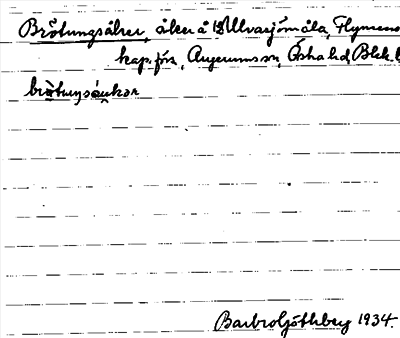 Brötungsåker, åker å Ulvasjömåla, Flymens
kap. förs., Augerums sn, Östra hd, Blek. l
brötungsåukar
Barbro Göthberg 1934.